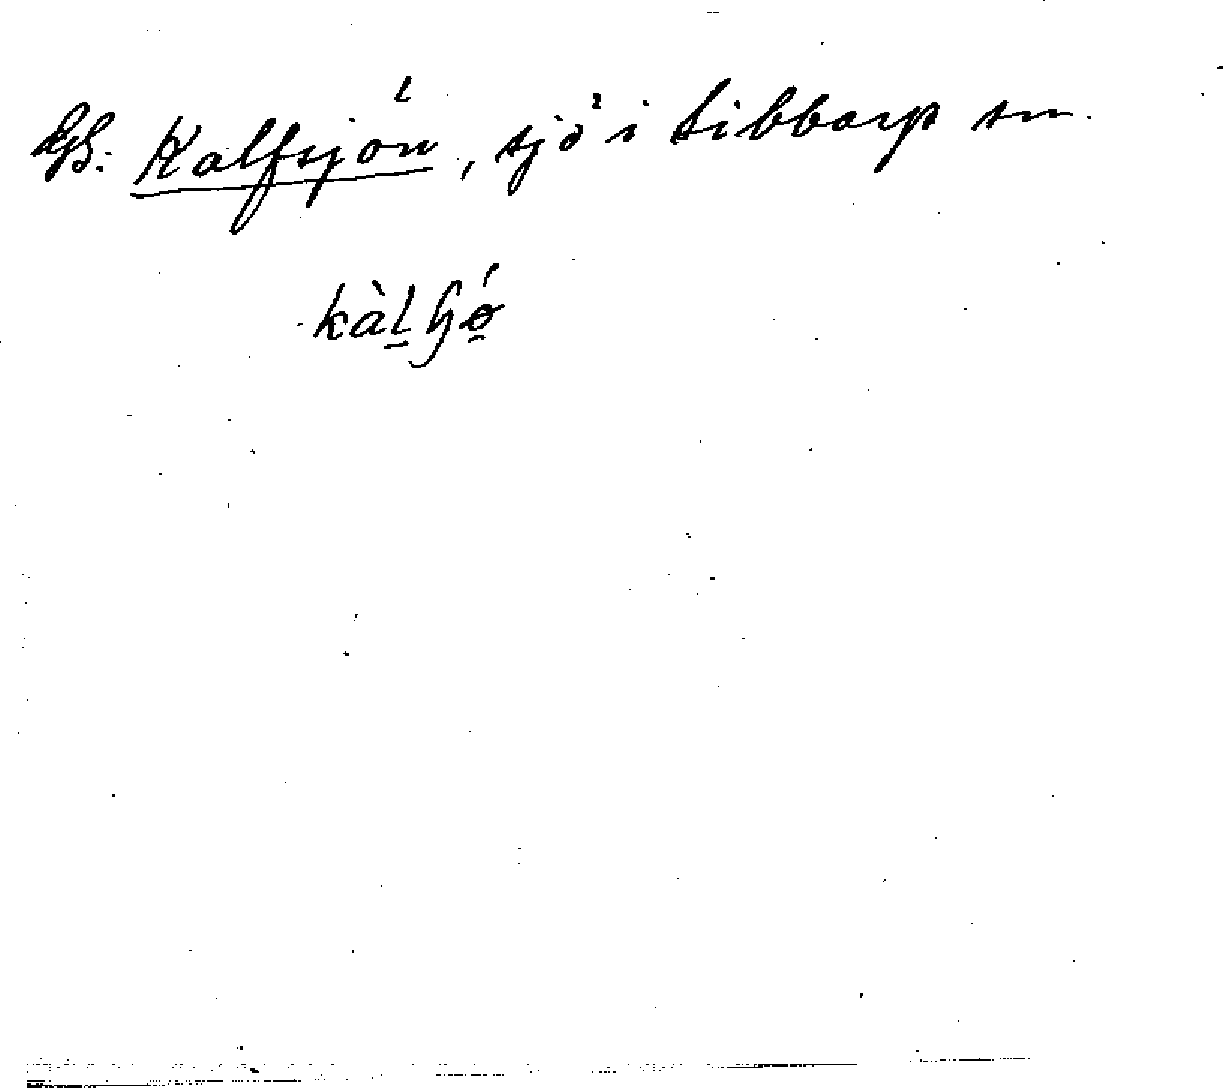 GB. Kalfsjön, sjö i Sibbarp sn.
kàl̠ɧó̠